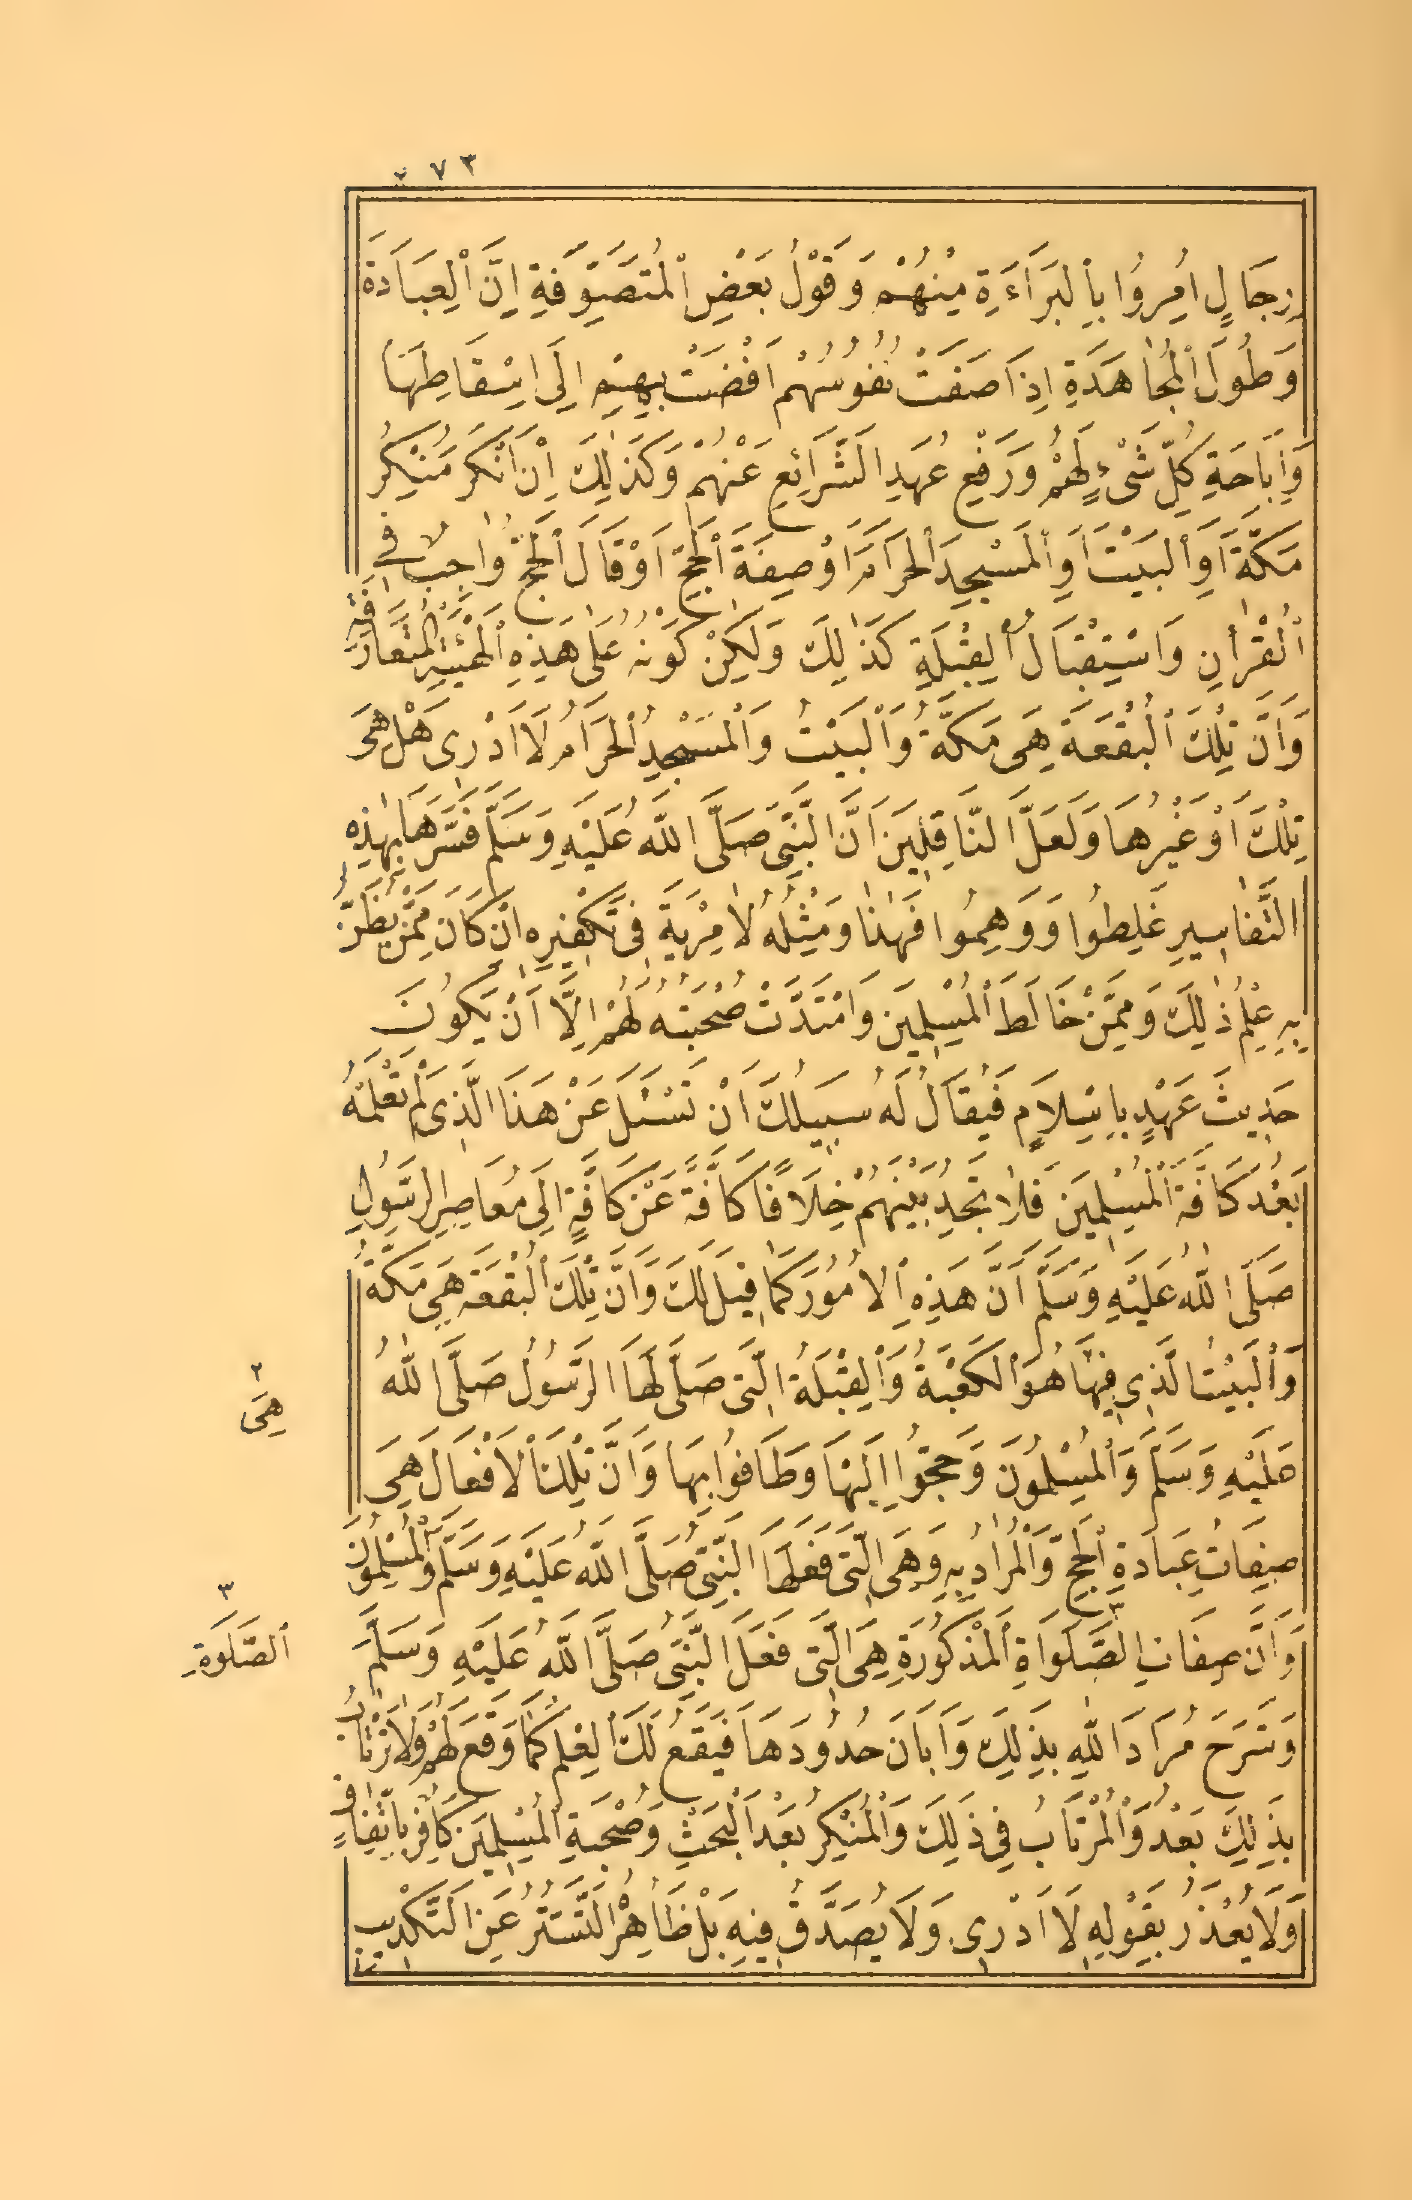 ٢٧٣
رِجَالٍ اُمِرُوا بِالْبَرَاءَةِ مِنْهُمْ وَقَوْلُ بَعْضِ الْمُتَصَوِّفَةِ اِنَّ الْعِبَادَةَ
وَطُولَ الْمُجَاهَدَةِ اِذَا صَفَتْ نُفُوسُهُمْ اَفْضَتْ بِهِمْ اِلَى اِسْقَاطِهَا
وَاِبَاحَةِ كُلِّ شَىْءٍ لَهُمْ وَرَفْعِ عُهَدِ الشَّرَائِعِ عَنْهُمْ وَكَذٰلِكَ اِنْ اَنْكَرَ مُنْكِرٌ
مَكَّةَ اَوِ الْبَيْتَ اَوِ الْمَسْجِدَ الْحَرَامَ اَوْ صِفَةَ الْحَجِّ اَوْ قَالَ الْحَجُّ وَاجِبٌ فِى
الْقُرْاٰنِ وَاسْتِقْبَالُ الْقِبْلَةِ كَذٰلِكَ وَلٰكِنْ كَوْنُهُ عَلَى هَذِهِ الْهَيْئَةِ الْمُتَعَارَفَةِ
وَاَنَّ تِلْكَ الْبُقْعَةَ هِىَ مَكَّةُ وَالْبَيْتُ وَالْمَسْجِدُ الْحَرَامُ لَا اَدْرِى هَلْ هِىَ
تِلْكَ اَوْ غَيْرُهَا وَلَعَلَّ النَّاقِلِينَ اَنَّ النَّبِىَّ صَلَّى اللّٰهُ عَلَيْهِ وَسَلَّمَ فَسَّرَهَا بِهٰذِهِ
التَّفَاسِيرِ غَلِطُوا وَوَهِمُوا فَهٰذَا وَمِثْلُهُ لَا مِرْيَةَ فِى تَكْفِيرِهِ اِنْ كَانَ مِمَّنْ يُظَنُّ
بِهِ عِلْمُ ذٰلِكَ وَمِمَّنْ خَالَطَ الْمُسْلِمِينَ وَامْتَدَّتْ صُحْبَتُهُ لَهُمْ اِلَّا اَنْ يَكُونَ
حَدِيثَ عَهْدٍ بِاِسْلَامٍ فَيُقَالُ لَهُ سَبِيلُكَ اَنْ تَسْئَلَ عَنْ هَذَا الَّذِى لَمْ تَعْلَمْهُ
بَعْدُ كَافَّةَ الْمُسْلِمِينَ فَلَا تَجِدُ بَيْنَهُمْ خِلَافًا كَافَّةً عَنْ كَافَّةٍ اِلَى مُعَاصِرِ الرَّسُولِ
صَلَّى اللّٰهُ عَلَيْهِ وَسَلَّمَ اَنَّ هَذِهِ الْاُمُورَ كَمَا قِيلَ لَكَ وَاَنَّ تِلْكَ الْبُقْعَةَ هِىَ مَكَّةُ
وَالْبَيْتُ الَّذِى فِيهَا هُوَ الْكَعْبَةُ وَالْقِبْلَةُ الَّتِى صَلَّى لَهَا الرَّسُولُ صَلَّى اللّٰهُ
عَلَيْهِ وَسَلَّمَ وَالْمُسْلِمُونَ وَحَجُّوا اِلَيْهَا وَطَافُوا بِهَا وَاَنَّ تِلْكَ الْاَفْعَالَ هِىَ
صِفَاتُ عِبَادَةِ الْحَجِّ وَالْمُرَادُ بِهِ وَهِىَ الَّتِى فَعَلَهَا النَّبِىُّ صَلَّى اللّٰهُ عَلَيْهِ وَسَلَّمَ وَالْمُسْلِمُونَ
وَاَنَّ صِفَاتِ الصَّلَوَاةِ ٣ الْمَذْكُورَةِ هِىَ الَّتِى فَعَلَ النَّبِىُّ صَلَّى اللّٰهُ عَلَيْهِ وَسَلَّمَ
وَشَرَحَ مُرَادَ اللّٰهِ بِذٰلِكَ وَاَبَانَ حُدُودَهَا فَيَقَعُ لَكَ الْعِلْمُ كَمَا وَقَعَ لَهُمْ وَلَا تَرْتَابُ
بِذٰلِكَ بَعْدُ وَالْمُرْتَابُ فِى ذٰلِكَ وَالْمُنْكِرُ بَعْدَ الْبَحْثِ وَصُحْبَةِ الْمُسْلِمِينَ كَافِرٌ بِاتِّفَاقٍ
وَلَا يُعْذَرُ بِقَوْلِهِ لَا اَدْرِى وَلَا يُصَدَّقُ فِيهِ بَلْ ظَاهِرُهُ التَّسَتُّرُ عَنِ التَّكْذِيبِ
٢
هِىَ
٣
الصَّلَوةِ